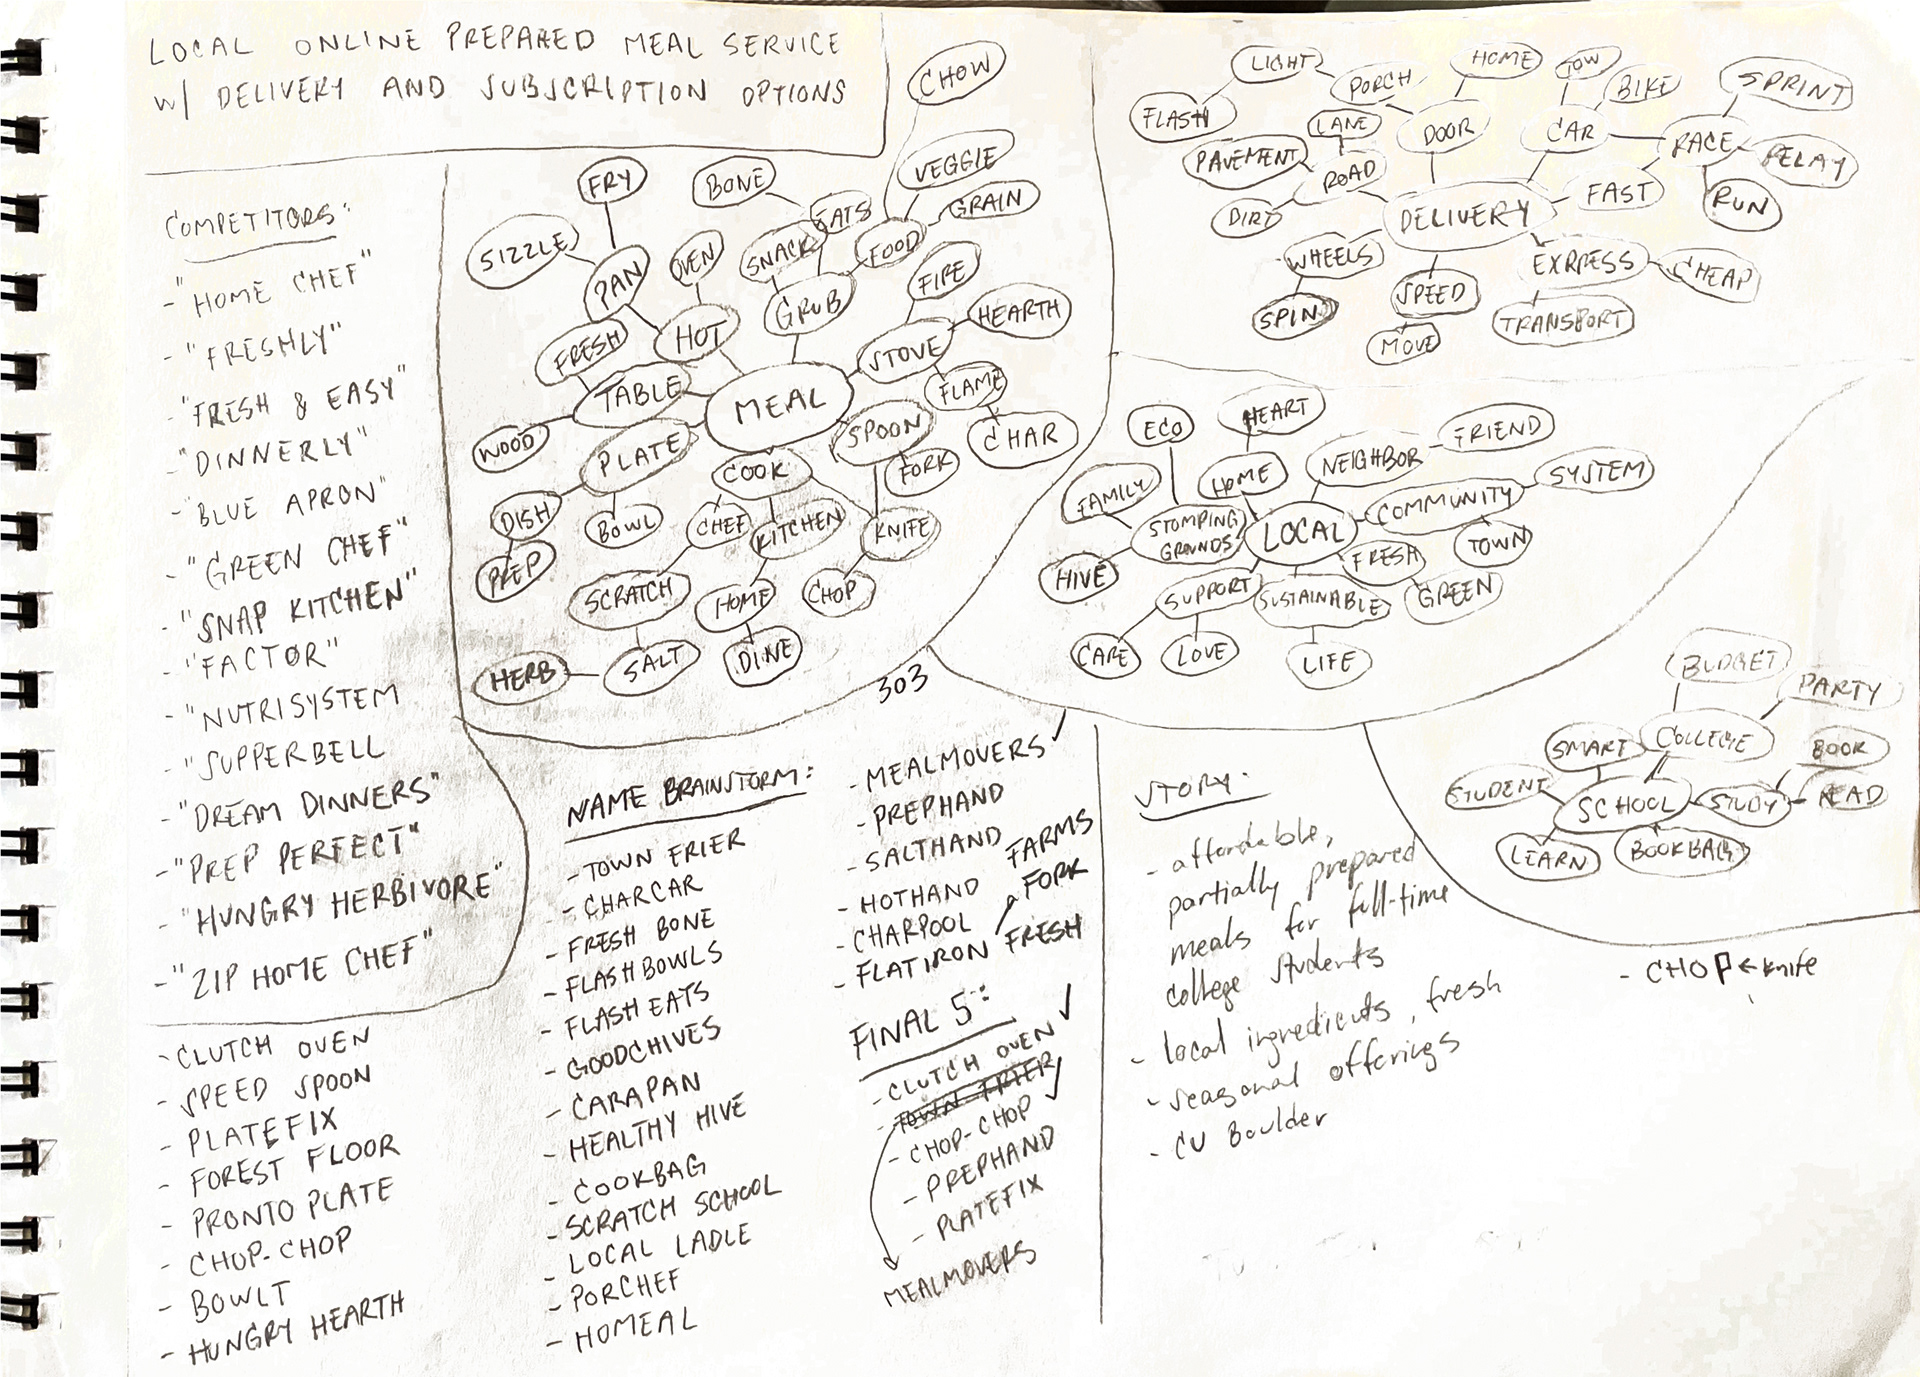 LOCAL ONLINE PREPARED MEAL SERVICE
W/ DELIVERY AND SUBSCRIPTION OPTIONS
COMPETITORS:
- "HOME CHEF"
- "FRESHLY"
- "FRESH & EASY"
- "DINNERLY"
- "BLUE APRON"
- "GREEN CHEF"
- "SNAP KITCHEN"
- "FACTOR"
- "NUTRISYSTEM
- "SUPPERBELL
- "DREAM DINNERS"
- "PREP PERFECT"
- "HUNGRY HERBIVORE"
- "ZIP HOME CHEF"
- CLUTCH OVEN
- SPEED SPOON
- PLATEFIX
- FOREST FLOOR
- PRONTO PLATE
- CHOP-CHOP
- BOWLT
- HUNGRY HEARTH
CHOW
VEGGIE
GRAIN
FRY
BONE
EATS
SNACK
FOOD
SIZZLE
PAN
OVEN
GRUB
FIRE
HEARTH
FRESH
HOT
STOVE
TABLE
MEAL
FLAME
CHAR
WOOD
PLATE
SPOON
FORK
COOK
DISH
BOWL
CHEF
KITCHEN
KNIFE
PREP
SCRATCH
HOME
CHOP
HERB
SALT
DINE
303
LIGHT
PORCH
HOME
TOW
BIKE
SPRINT
FLASH
LANE
DOOR
CAR
RACE
RELAY
PAVEMENT
ROAD
FAST
RUN
DIRT
DELIVERY
WHEELS
EXPRESS
CHEAP
SPIN
SPEED
TRANSPORT
MOVE
ECO
HEART
FRIEND
FAMILY
HOME
NEIGHBOR
SYSTEM
STOMPING
GROUNDS
LOCAL
COMMUNITY
TOWN
HIVE
FRESH
GREEN
SUPPORT
SUSTAINABLE
CARE
LOVE
LIFE
BUDGET
PARTY
SMART
COLLEGE
BOOK
STUDENT
SCHOOL
STUDY
READ
LEARN
BOOKBAG
- CHOP ← knife
NAME BRAINSTORM:
- TOWN FRIER
- CHARCAR
- FRESH BONE
- FLASHBOWLS
- FLASH EATS
- GOODCHIVES
- CARAPAN
- HEALTHY HIVE
- COOKBAG
- SCRATCH SCHOOL
- LOCAL LADLE
- PORCHEF
- HOMEAL
- MEALMOVERS ✓
- PREPHAND
- SALTHAND
- HOTHAND FARMS
- CHARPOOL FORK
- FLATIRON FRESH
FINAL 5:
- CLUTCH OVEN ✓
- TOWN FRIER
- CHOP-CHOP ✓
- PREPHAND
- PLATEFIX
MEALMOVERS
STORY:
- affordable,
partially prepared
meals for full-time
college students
- local ingredients, fresh
- seasonal offerings
- CU Boulder